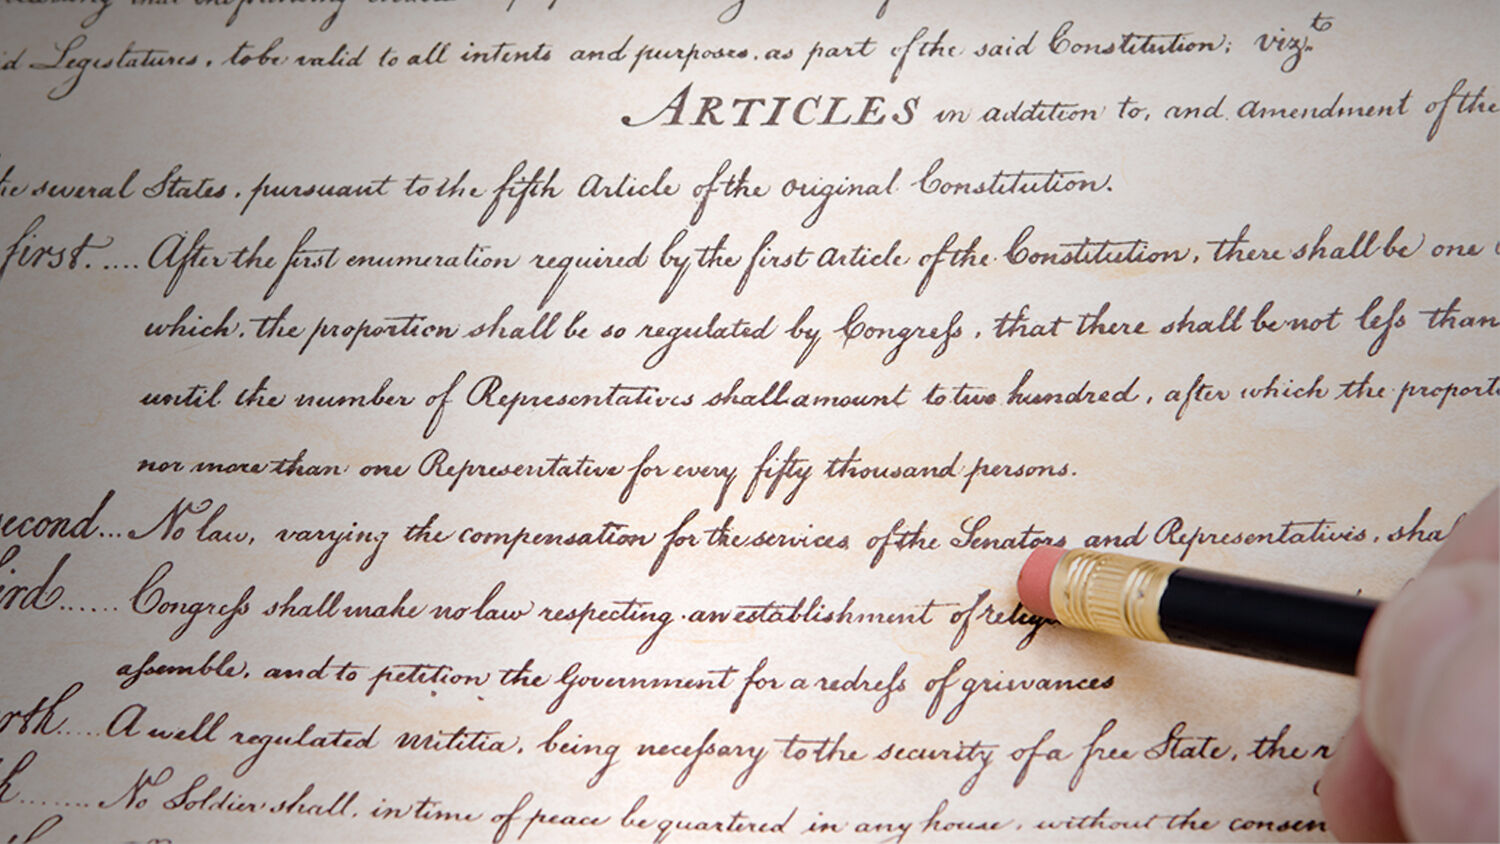 d Legislatures, to be valid to all intents and purposes, as part of the said Constitution; vizt.
ARTICLES in addition to, and amendment of the
the several States, pursuant to the fifth Article of the original Constitution.
first..... After the first enumeration required by the first Article of the Constitution, there shall be one
which, the proportion shall be so regulated by Congress, that there shall be not less than
until the number of Representatives shall amount to two hundred, after which the proporti
nor more than one Representative for every fifty thousand persons.
second... No law, varying the compensation for the services of the Senators and Representatives, sha
ird...... Congress shall make no law respecting an establishment of relig
assemble, and to petition the Government for a redress of grievances
rth..... A well regulated Militia, being necessary to the security of a free State, the r
h........ No Soldier shall, in time of peace be quartered in any house, without the consen